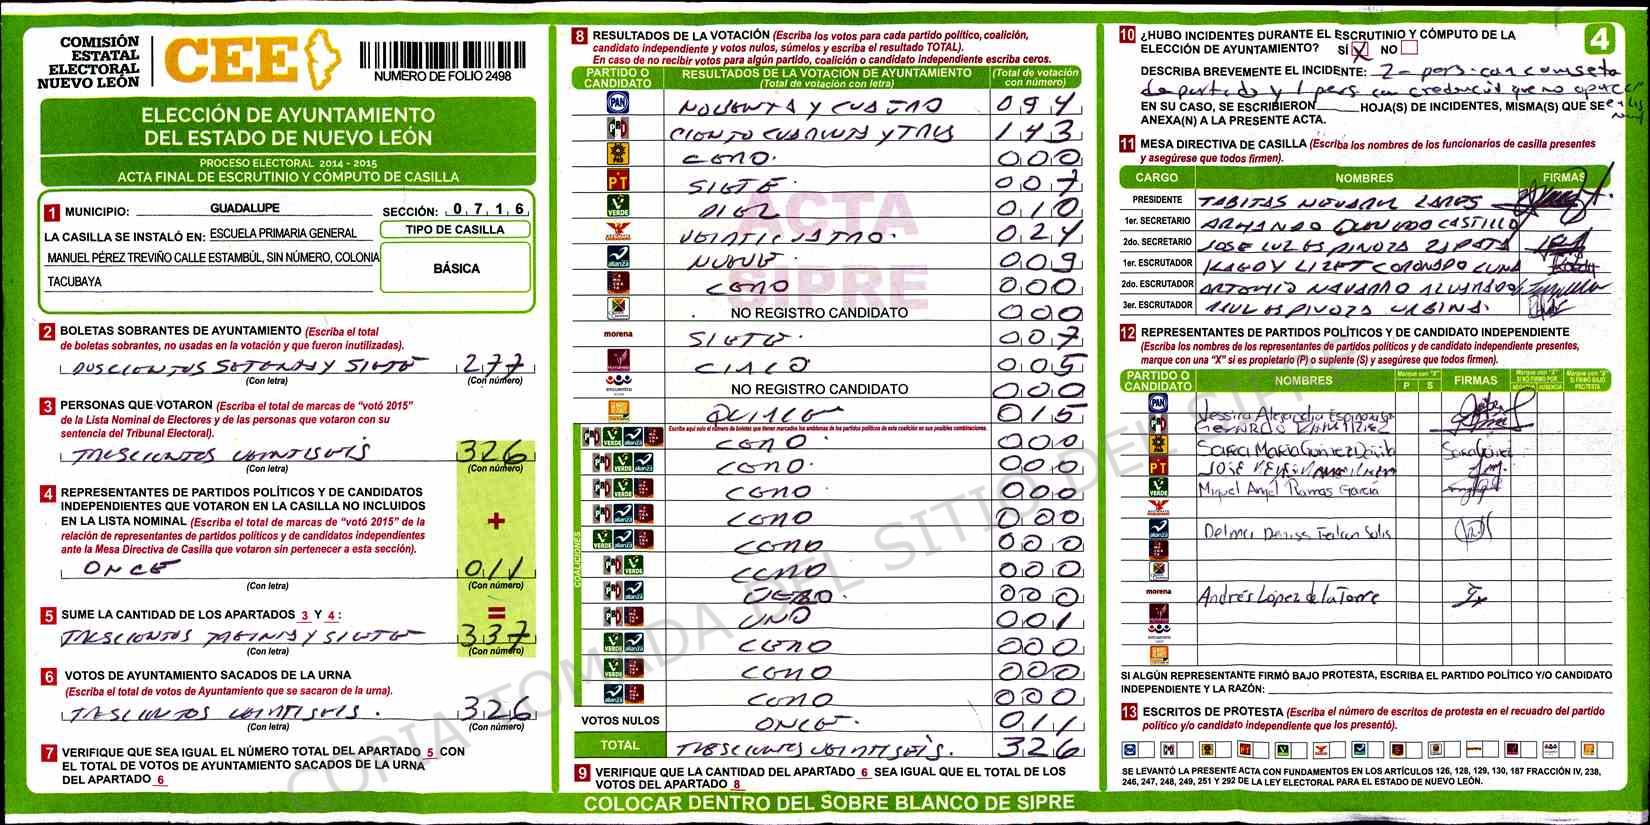 COMISIÓN
ESTATAL
ELECTORAL
NUEVO LEÓN
CEE
NUMERO DE FOLIO 2498
ELECCIÓN DE AYUNTAMIENTO
DEL ESTADO DE NUEVO LEÓN
PROCESO ELECTORAL 2014 - 2015
ACTA FINAL DE ESCRUTINIO Y CÓMPUTO DE CASILLA
1 MUNICIPIO: GUADALUPE SECCIÓN: 0 7 1 6
LA CASILLA SE INSTALÓ EN: ESCUELA PRIMARIA GENERAL
MANUEL PÉREZ TREVIÑO CALLE ESTAMBÚL, SIN NÚMERO, COLONIA
TACUBAYA
TIPO DE CASILLA
BÁSICA
2 BOLETAS SOBRANTES DE AYUNTAMIENTO (Escriba el total
de boletas sobrantes, no usadas en la votación y que fueron inutilizadas).
DOSCIENTOS SETENTA Y SIETE 277
(Con letra) (Con número)
3 PERSONAS QUE VOTARON (Escriba el total de marcas de “votó 2015”
de la Lista Nominal de Electores y de las personas que votaron con su
sentencia del Tribunal Electoral).
TRESCIENTOS VEINTISEIS 326
(Con letra) (Con número)
4 REPRESENTANTES DE PARTIDOS POLÍTICOS Y DE CANDIDATOS
INDEPENDIENTES QUE VOTARON EN LA CASILLA NO INCLUIDOS
EN LA LISTA NOMINAL (Escriba el total de marcas de “votó 2015” de la
relación de representantes de partidos políticos y de candidatos independientes
ante la Mesa Directiva de Casilla que votaron sin pertenecer a esta sección).
+
ONCE 011
(Con letra) (Con número)
5 SUME LA CANTIDAD DE LOS APARTADOS 3 Y 4 :
=
TRESCIENTOS TREINTA Y SIETE 337
(Con letra) (Con número)
6 VOTOS DE AYUNTAMIENTO SACADOS DE LA URNA
(Escriba el total de votos de Ayuntamiento que se sacaron de la urna).
TRESCIENTOS VEINTISEIS. 326
(Con letra) (Con número)
7 VERIFIQUE QUE SEA IGUAL EL NÚMERO TOTAL DEL APARTADO 5 CON
EL TOTAL DE VOTOS DE AYUNTAMIENTO SACADOS DE LA URNA
DEL APARTADO 6
8 RESULTADOS DE LA VOTACIÓN (Escriba los votos para cada partido político, coalición,
candidato independiente y votos nulos, súmelos y escriba el resultado TOTAL).
En caso de no recibir votos para algún partido, coalición o candidato independiente escriba ceros.
PARTIDO O CANDIDATO RESULTADOS DE LA VOTACIÓN DE AYUNTAMIENTO (Total de votación con letra) (Total de votación con número)
PAN NOVENTA Y CUATRO 094
PRD CIENTO CUARENTA Y TRES 143
CERO. 000
PT SIETE. 007
VERDE DIEZ 010
VEINTICUATRO. 024
alianza NUEVE 009
CERO 000
NO REGISTRO CANDIDATO 000
morena SIETE. 007
CINCO 005
encuentro NO REGISTRO CANDIDATO 000
QUINCE 015
Escriba aquí solo el número de boletas que tienen marcados los emblemas de los partidos políticos de esta coalición en sus posibles combinaciones.
COALICIONES
CERO 000
CERO. 000
CERO 000
CERO 000
CERO 000
CERO 000
CERO 000
UNO 001
CERO 000
CERO 000
CERO 000
VOTOS NULOS ONCE. 011
TOTAL TRESCIENTOS VEINTISEIS. 326
9 VERIFIQUE QUE LA CANTIDAD DEL APARTADO 6 SEA IGUAL QUE EL TOTAL DE LOS
VOTOS DEL APARTADO 8
ACTA
SIPRE
COPIA TOMADA DEL SITIO DEL SIPRE
COLOCAR DENTRO DEL SOBRE BLANCO DE SIPRE
4
10 ¿HUBO INCIDENTES DURANTE EL ESCRUTINIO Y CÓMPUTO DE LA
ELECCIÓN DE AYUNTAMIENTO? SÍ X NO
DESCRIBA BREVEMENTE EL INCIDENTE: 2 pers. con camiseta
de partido y 1 pers con credencial que no aparece
EN SU CASO, SE ESCRIBIERON HOJA(S) DE INCIDENTES, MISMA(S) QUE SE
ANEXA(N) A LA PRESENTE ACTA.
11 MESA DIRECTIVA DE CASILLA (Escriba los nombres de los funcionarios de casilla presentes
y asegúrese que todos firmen).
CARGO NOMBRES FIRMAS
PRESIDENTE
1er. SECRETARIO ARMANDO CASTILLO
2do. SECRETARIO JOSE LUZ ESPINOZA ZAPATA
1er. ESCRUTADOR LIZET CORONADO LUNA
2do. ESCRUTADOR ANTONIO NAVARRO ALVARADO
3er. ESCRUTADOR ESPINOZA URBINA.
12 REPRESENTANTES DE PARTIDOS POLÍTICOS Y DE CANDIDATO INDEPENDIENTE
(Escriba los nombres de los representantes de partidos políticos y de candidato independiente presentes,
marque con una “X” si es propietario (P) o suplente (S) y asegúrese que todos firmen).
PARTIDO O CANDIDATO NOMBRES Marque con “X” P S FIRMAS
PAN Yessica Alejandra Espinoza
GERARDO RAMIREZ
Sara Maria Gomez Davila
PT JOSE
VERDE Miguel Angel Ramas Garcia
Delma Denise Falcon Solis
morena Andrés López de la Torre
SI ALGÚN REPRESENTANTE FIRMÓ BAJO PROTESTA, ESCRIBA EL PARTIDO POLÍTICO Y/O CANDIDATO
INDEPENDIENTE Y LA RAZÓN:
13 ESCRITOS DE PROTESTA (Escriba el número de escritos de protesta en el recuadro del partido
político y/o candidato independiente que los presentó).
SE LEVANTÓ LA PRESENTE ACTA CON FUNDAMENTOS EN LOS ARTÍCULOS 126, 128, 129, 130, 187 FRACCIÓN IV, 238,
246, 247, 248, 249, 251 Y 292 DE LA LEY ELECTORAL PARA EL ESTADO DE NUEVO LEÓN.